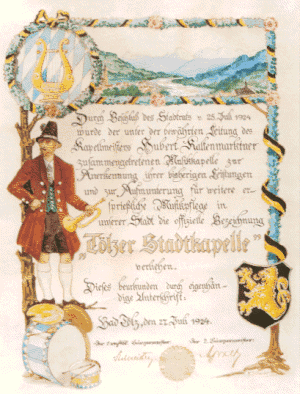 Durch Beschluß des Stadtrats v. 25. Juli 1924
wurde der unter der bewährten Leitung des
Kapellmeisters Hubert Kaltenmarktner
zusammengetretenen Musikkapelle zur
Anerkennung ihrer bisherigen Leistungen
und zur Aufmunterung für weitere er-
sprießliche Musikpflege in
unserer Stadt die offizielle Bezeichnung
„Tölzer Stadtkapelle"
verliehen.
Dieses beurkunden durch eigenhän-
dige Unterschrift.
Bad Tölz, den 27. Juli 1924.
Bürgermeister: Der 2. Bürgermeister: